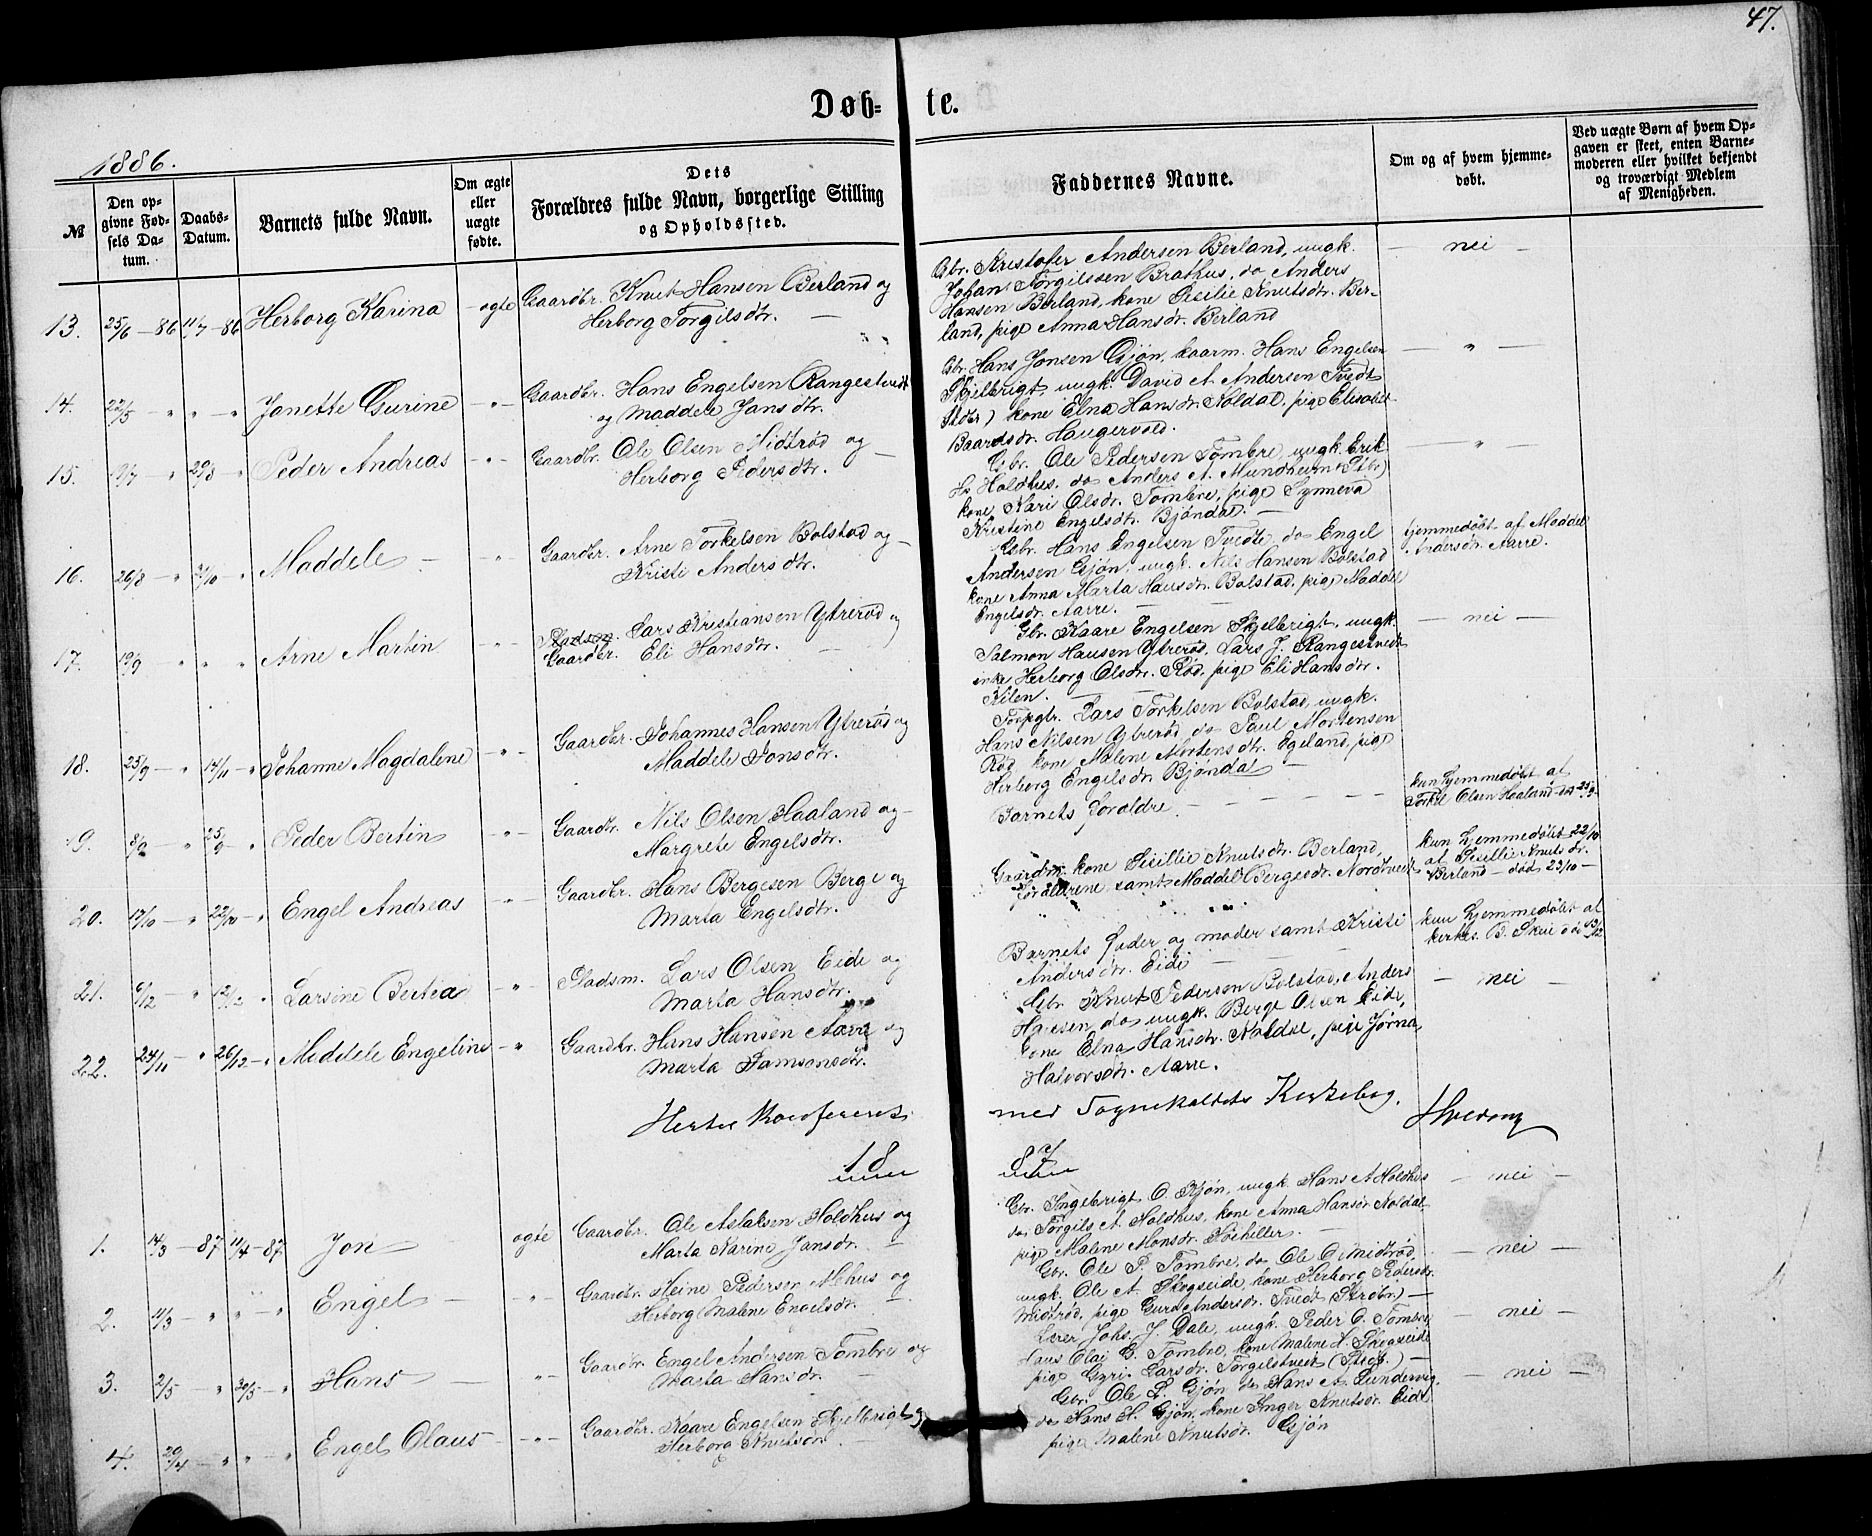 47.
Døb- te.
1886.
№
Den opgivne Fødsels Datum.
Daabs-Datum.
Barnets fulde Navn.
Om ægte eller uægte fødte.
Dets Forældres fulde Navn, borgerlige Stilling og Opholdssted.
Faddernes Navne.
Om og af hvem hjemmedøbt.
Ved uægte Børn af hvem Opgaven er skeet, enten Barnemoderen eller hvilket bekjendt og troværdigt Medlem af Menigheden.
13. 25/6 - 86 11/7 - 86 Herborg Karina - ægte Gaardbr. Knut Hansen Berland og
Herborg Torgilsdtr. -
Gbr. Kristofer Andersen Berland, ungk.
Johan Torgilssen Brathus, do Anders
Hansen Berland, kone Sesilie Knutsdtr. Ber-
land, pige Anna Hansdr. Berland
- nei -
14. 22/5 - " " - " Janette Gurine - " - Gaardbr. Hans Engelsen Rangestvedt
og Maddele Jansdtr.
Gbr. Hans Jonsen Gjøn, kaarm. Hans Engelsen
Skjelbrigt, ungk. David A. Andersen Tvedt
kone Elna Hansdr. Noldal, pige Elisabet
Baardsdr. Haugervold.
- " -
15. 19/7 - " 29/8 - " Peder Andreas - " - Gaardbr. Ole Olsen Midtrød og -
Herborg Pedersdtr.
Gbr. Ole Pedersen Tombre, ungk. Erik
Hs Holdhus. do Anders A. Mundheim
kone Kari Olsdr. Tombre, pige Synneva
Kristine Engelsdtr. Bjøndal. -
- " -
16. 26/8 - " 31/10 - " Maddele - " Gaardbr. Arne Torkelsen Bolstad og -
Kristi Andersdtr.
Gbr. Hans Engelsen Tvedte, do Engel
Andersen Gjøn, ungk. Nils Hansen Bolstad
kone Anna Marta Hansdr. Bolstad, pige Maddel
Engelsdr. Aarre. -
hjemmedøbt af Maddel
Andersdr. Aarre.
17. 19/9 " " " Arne Martin - " - Gaardbr. Lars Kristiansen Ytrerød og
Eli Hansdtr. -
Gbr. Kaare Engelsen Skjelbrigt, ungk.
Salmon Hansen Ytrerød, Lars J. Rangestvedt
enke Herborg Olsdr. Rød, pige Eli Hansdtr.
Kilen. -
- nei -
18. 25/9 - " 14/11 - " Johanne Magdalene - " - Gaardbr. Johannes Hansen Ytrerød og
Maddele Jonsdtr.
Lars Torkelsen Bolstad, ungk.
Hans Nilsen Ytrerød do Paul Mortensen
Rød, kone Malene Mortensdtr. Egeland, pige
Herborg Engelsdr. Bjøndal -
19. 8/9 - " 25/9 " Peder Bertin - " - Gaardbr. Nils Olsen Haaland og -
Margrete Engelsdtr.
Barnets foraldre - - -
kun hjemmedøbt af
Torkel Olsen Haaland død 25/9
20. 17/10 - " 22/10 - " Engel Andreas - " - Gaardbr. Hans Bergesen Berge og
Marta Engelsdtr.
Gaardm. kone Sisillie Knutsdtr. Berland
foraldrene samt Maddel Bergesdr. Nordtvedt
kun hjemmedøbt 22/10
af Sesillie Knutsdr.
Berland - død 23/10 -
21. 6/12 - " 12/12 " Larsine Bertea - " - Pladsm. Lars Olsen Eide og
Marta Hansdtr.
Barnets fader og moder samt Kristi
Andersdr. Eide -
kun hjemmedøbt af
kirkes. B. Skeie død 13/12
22. 24/11 - " 26/12 - " Maddele Engeline - " Gaardbr. Hans Hansen Aarre og
Marta Samsonsdtr.
Gbr. Knut Pedersen Bolstad, Anders
Hansen, do ungk. Berge Olsen Eide,
kone Elna Hansdr. Noldal, pige Jørna
Halvorsdr. Aarre.
- nei -
Hertil konfereret med Sognekaldets Kirkebog.
18 87
1. 14/3 - 87 11/4 - 87 Jon - ægte Gaardbr. Ole Aslaksen Holdhus og
Marta Karine Jansdr. -
Gbr. Ingebrigt O. Gjøn, ungk Hans A Holdhus
do Torgils A. Holdhus, kone Anna Hansdr Noldal
pige Malene Monsdr.
- nei -
2. 11/3 - " " - " Engel - - " - Gaardbr. Heine Pedersen Alhus og
Herborg Malene Engelsdr. -
Gbr. Ole P. Tombre, do Ole O. Midtrød,
ungk. Ole A. Skogseide, kone Herborg Pedersdr
Midtrød, pige Guro Andersdr. Tvedt (Strdbr.) -
- nei -
3. 2/5 - " 30/5 - " Hans - - " - Gaardbr. Engel Andersen Tombre og
Marta Hansdr. -
Lærer Johs. J. Dale, ungk. Peder O. Tombre
Hans Olai E. Tombre, kone Malene A. Skogseide
pige Gyri Larsdr. Torgilstveit -
- nei -
4. 20/4 - " " - " Engel Olaus - " - Gaardbr. Kaare Engelsen Skjelbrigt og
Herborg Knutsdr.
Gbr. Ole L. Gjøn, do Hans A. Lundervig.
do Hans H. Gjøn, kone Inger Knutsdr. Eide
pige Malene Knutsdr. Gjøn
- nei -